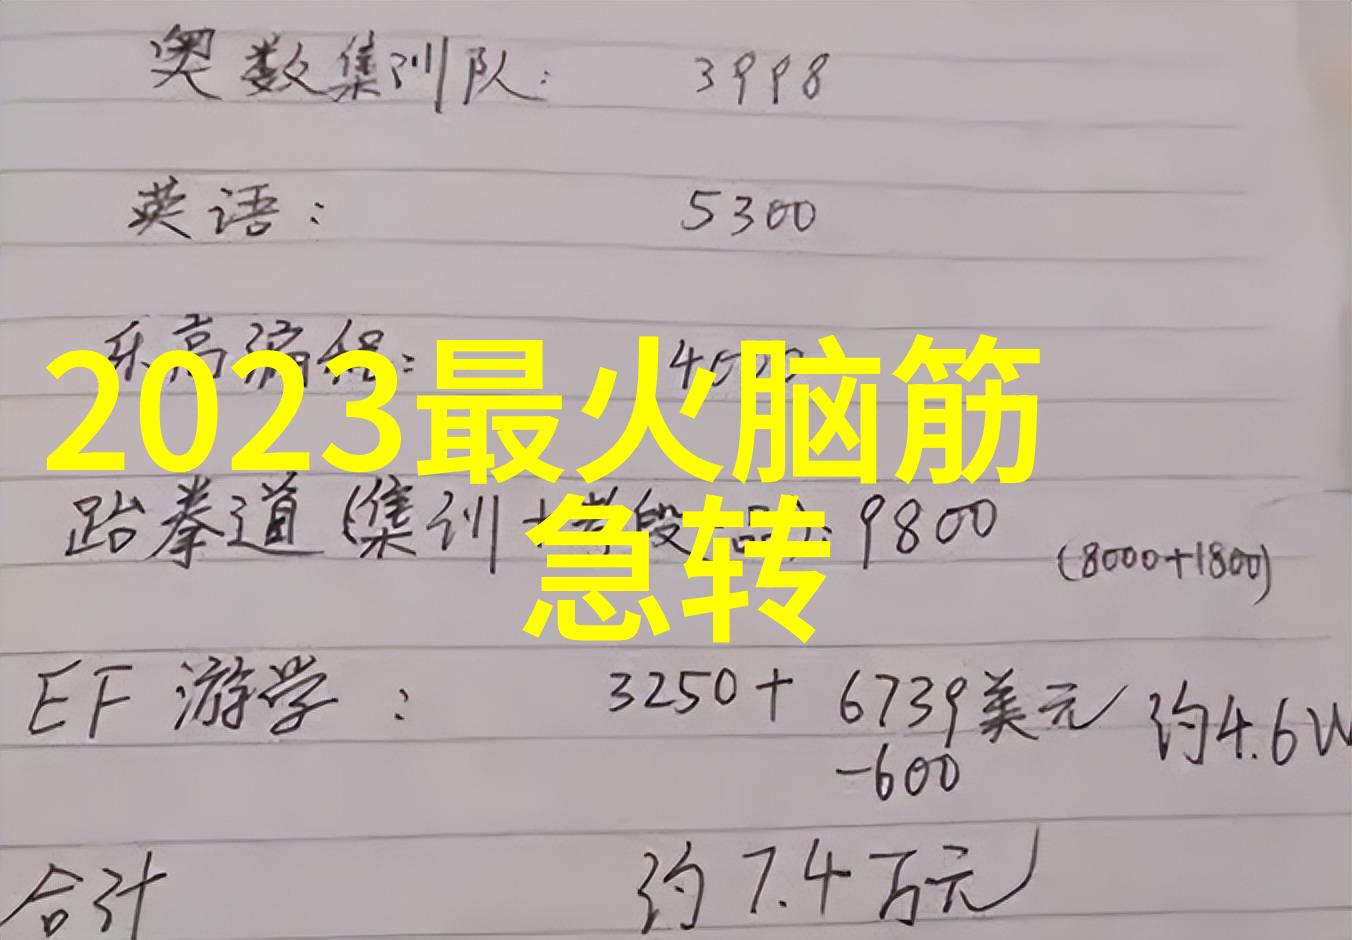 奥数集训队: 3998
英语: 5300
乐高编程: 4500
2023最火脑筋
急转
跆拳道(集训+考段 品): 9800
(8000+1800)
EF 游学: 3250+ 6739美元 约4.6W
-600
合计 约7.4万元